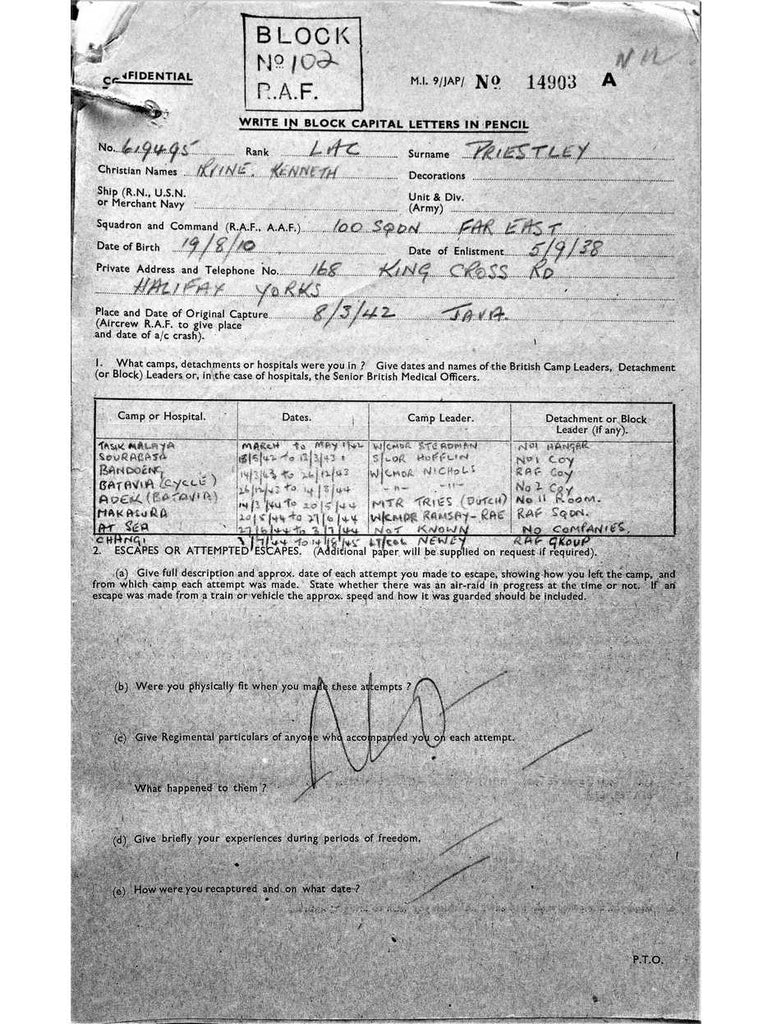 BLOCK
Nº 102
R.A.F.
CONFIDENTIAL
M.I. 9/JAP/ Nº 14903 A
WRITE IN BLOCK CAPITAL LETTERS IN PENCIL
No. 619495 Rank LAC Surname PRIESTLEY
Christian Names IRVINE. KENNETH Decorations
Ship (R.N., U.S.N. or Merchant Navy Unit & Div. (Army)
Squadron and Command (R.A.F., A.A.F.) 100 SQDN FAR EAST
Date of Birth 19/8/10 Date of Enlistment 5/9/38
Private Address and Telephone No. 168 KING CROSS RD
HALIFAX YORKS
Place and Date of Original Capture 8/3/42 JAVA.
(Aircrew R.A.F. to give place
and date of a/c crash).
1. What camps, detachments or hospitals were you in ? Give dates and names of the British Camp Leaders, Detachment
(or Block) Leaders or, in the case of hospitals, the Senior British Medical Officers.
Camp or Hospital. Dates. Camp Leader. Detachment or Block Leader (if any).
TASIK MALAYA MARCH to MAY 1942 W/CMDR STEADMAN No1 HANGAR
SOURABAYA to 13/3/43 S/LDR HOFFLIN No1 COY
BANDOENG 14/3/43 to 26/12/43 W/CMOR NICHOLS RAF COY
BATAVIA (CYCLE) 26/12/43 to 14/3/44 -"- -"- No 2 COY
ADEK (BATAVIA) 14/3/44 to 20/5/44 MTR TRIES (DUTCH) No 11 ROOM.
MAKASURA 20/5/44 to 27/6/44 W/CMDR RAMSAY-RAE RAF SQDN.
AT SEA 27/6/44 to 3/7/44 NOT KNOWN NO COMPANIES.
CHANGI 3/7/44 to LT/COL NEWEY RAF GROUP
2. ESCAPES OR ATTEMPTED ESCAPES. (Additional paper will be supplied on request if required).
(a) Give full description and approx. date of each attempt you made to escape, showing how you left the camp, and
from which camp each attempt was made. State whether there was an air-raid in progress at the time or not. If an
escape was made from a train or vehicle the approx. speed and how it was guarded should be included.
(b) Were you physically fit when you made these attempts ?
NO
(c) Give Regimental particulars of anyone who accompanied you on each attempt.
What happened to them ?
(d) Give briefly your experiences during periods of freedom.
(e) How were you recaptured and on what date ?
P.T.O.